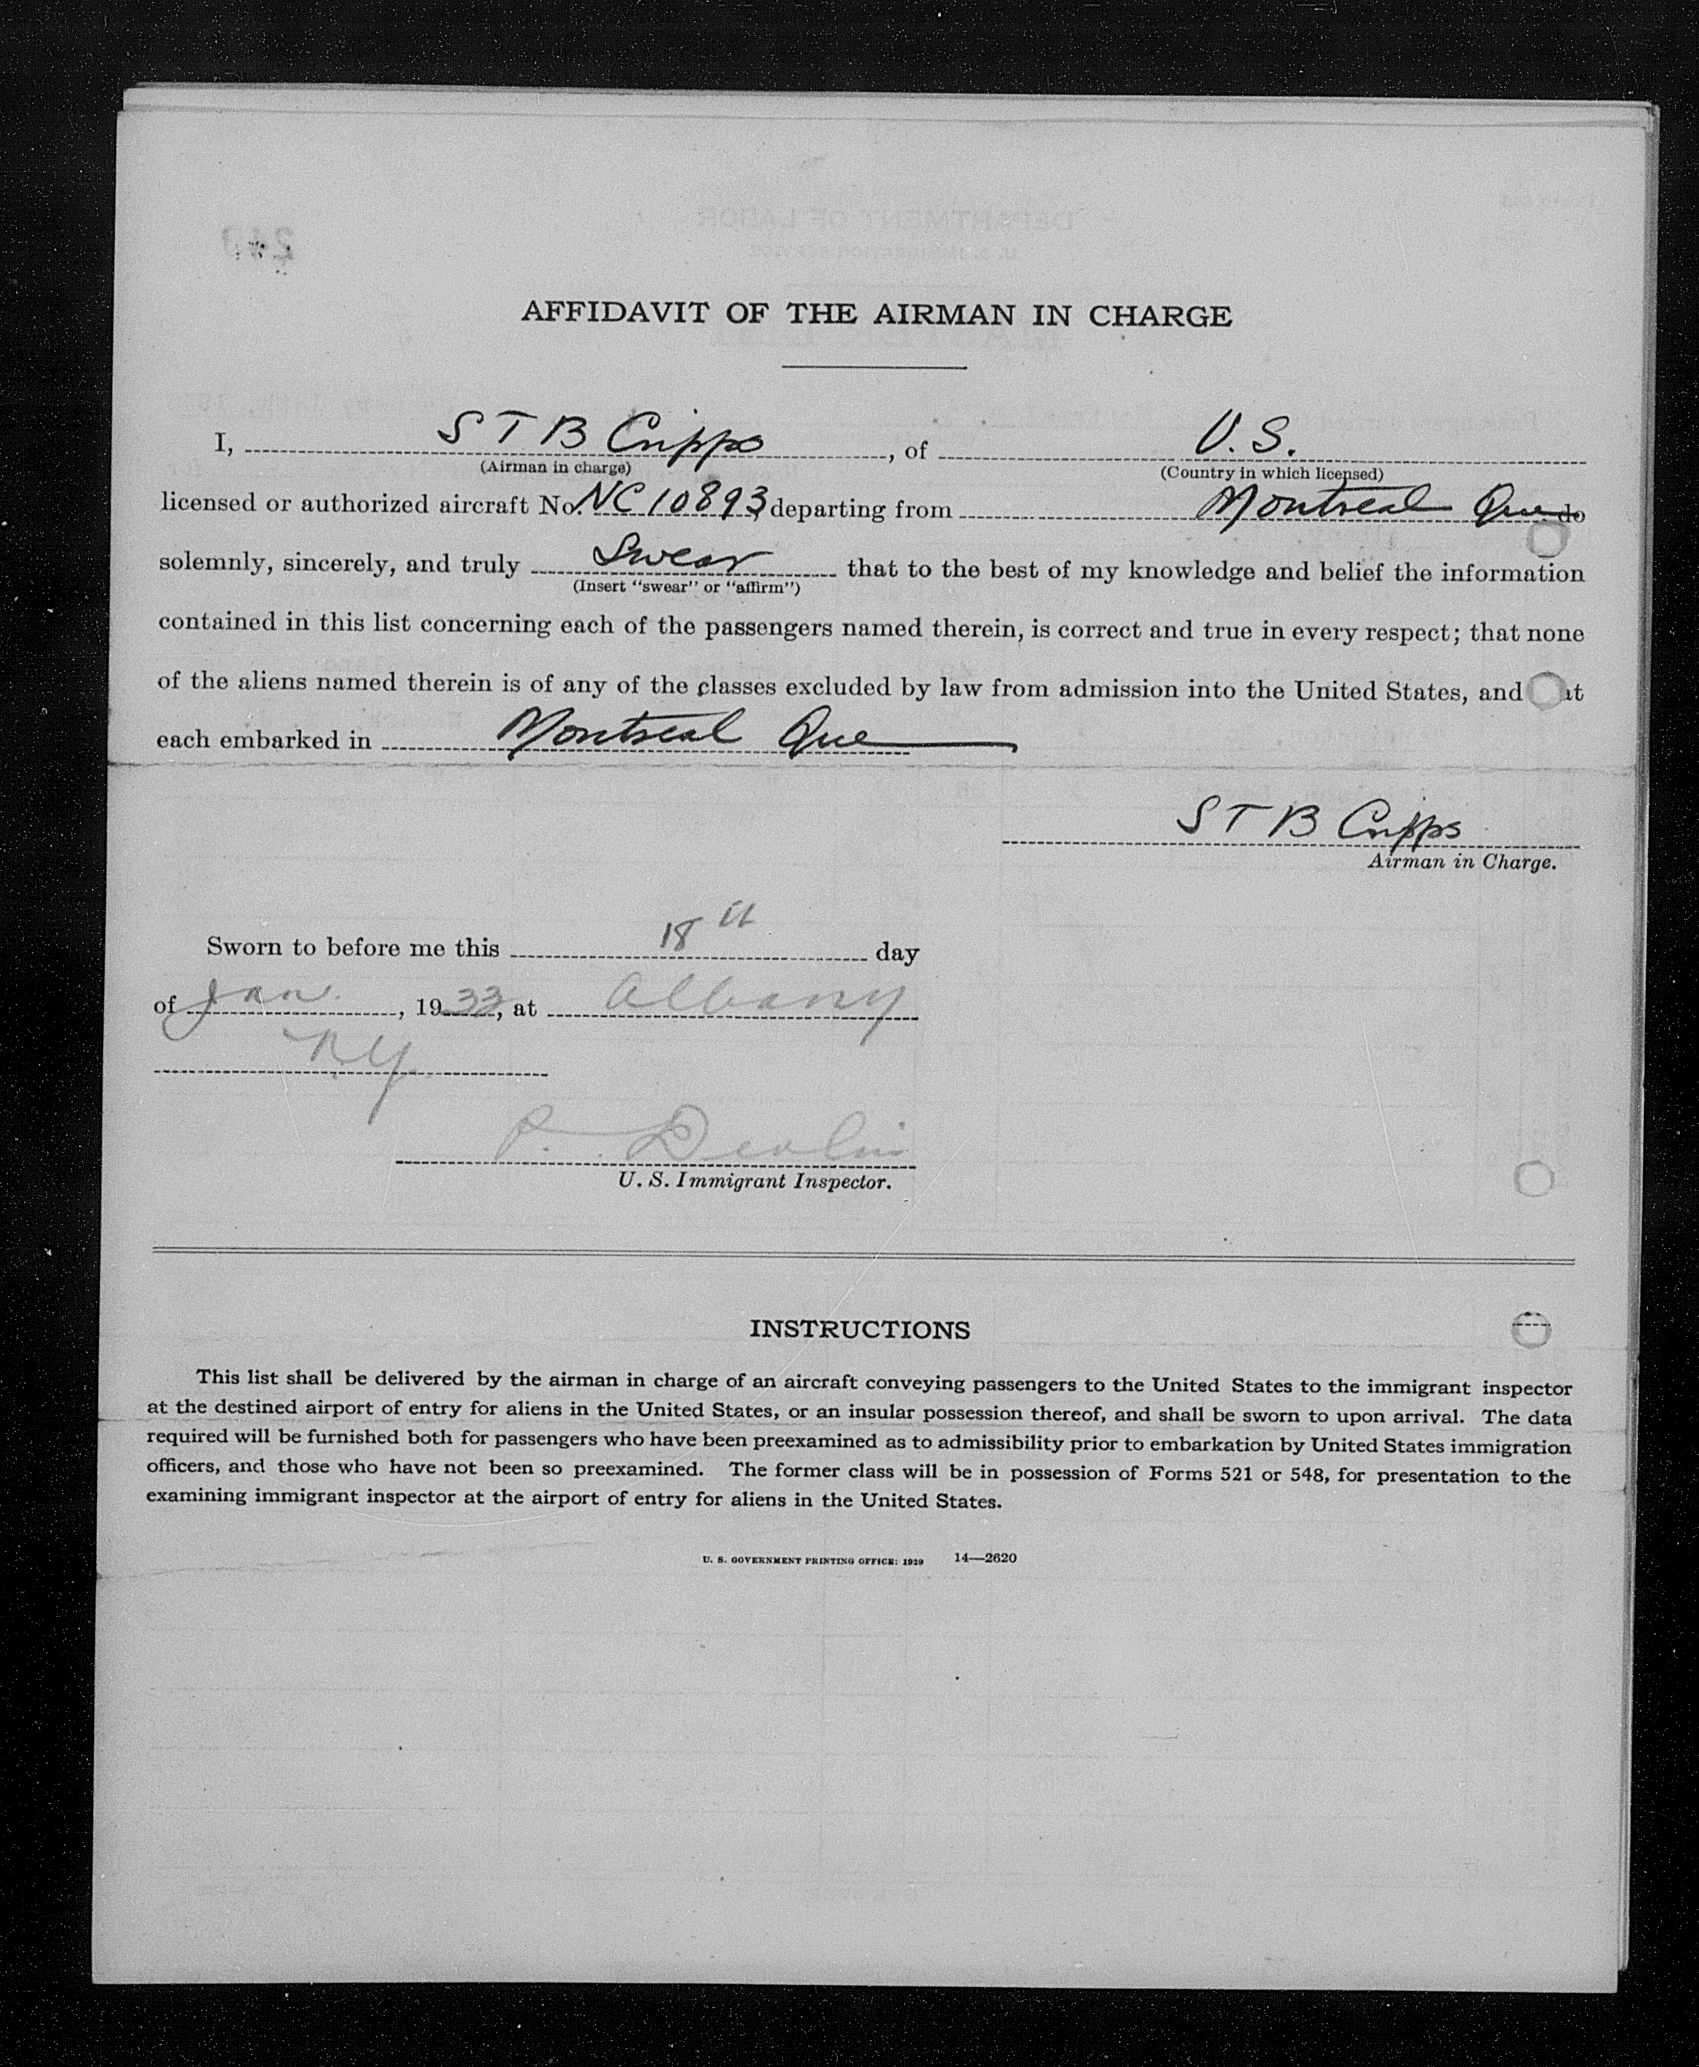 AFFIDAVIT OF THE AIRMAN IN CHARGE
I, S T B Cripps, of U.S.
(Airman in charge) (Country in which licensed)
licensed or authorized aircraft No. NC 10893, departing from Montreal Que do
solemnly, sincerely, and truly Swear that to the best of my knowledge and belief the information
(Insert "swear" or "affirm")
contained in this list concerning each of the passengers named therein, is correct and true in every respect; that none
of the aliens named therein is of any of the classes excluded by law from admission into the United States, and at
each embarked in Montreal Que
S T B Cripps
Airman in Charge.
Sworn to before me this 18th day
of Jan., 1933, at Albany
N.Y.
P. Devlin
U. S. Immigrant Inspector.
INSTRUCTIONS
This list shall be delivered by the airman in charge of an aircraft conveying passengers to the United States to the immigrant inspector
at the destined airport of entry for aliens in the United States, or an insular possession thereof, and shall be sworn to upon arrival. The data
required will be furnished both for passengers who have been preexamined as to admissibility prior to embarkation by United States immigration
officers, and those who have not been so preexamined. The former class will be in possession of Forms 521 or 548, for presentation to the
examining immigrant inspector at the airport of entry for aliens in the United States.
U. S. GOVERNMENT PRINTING OFFICE: 1929 14—2620